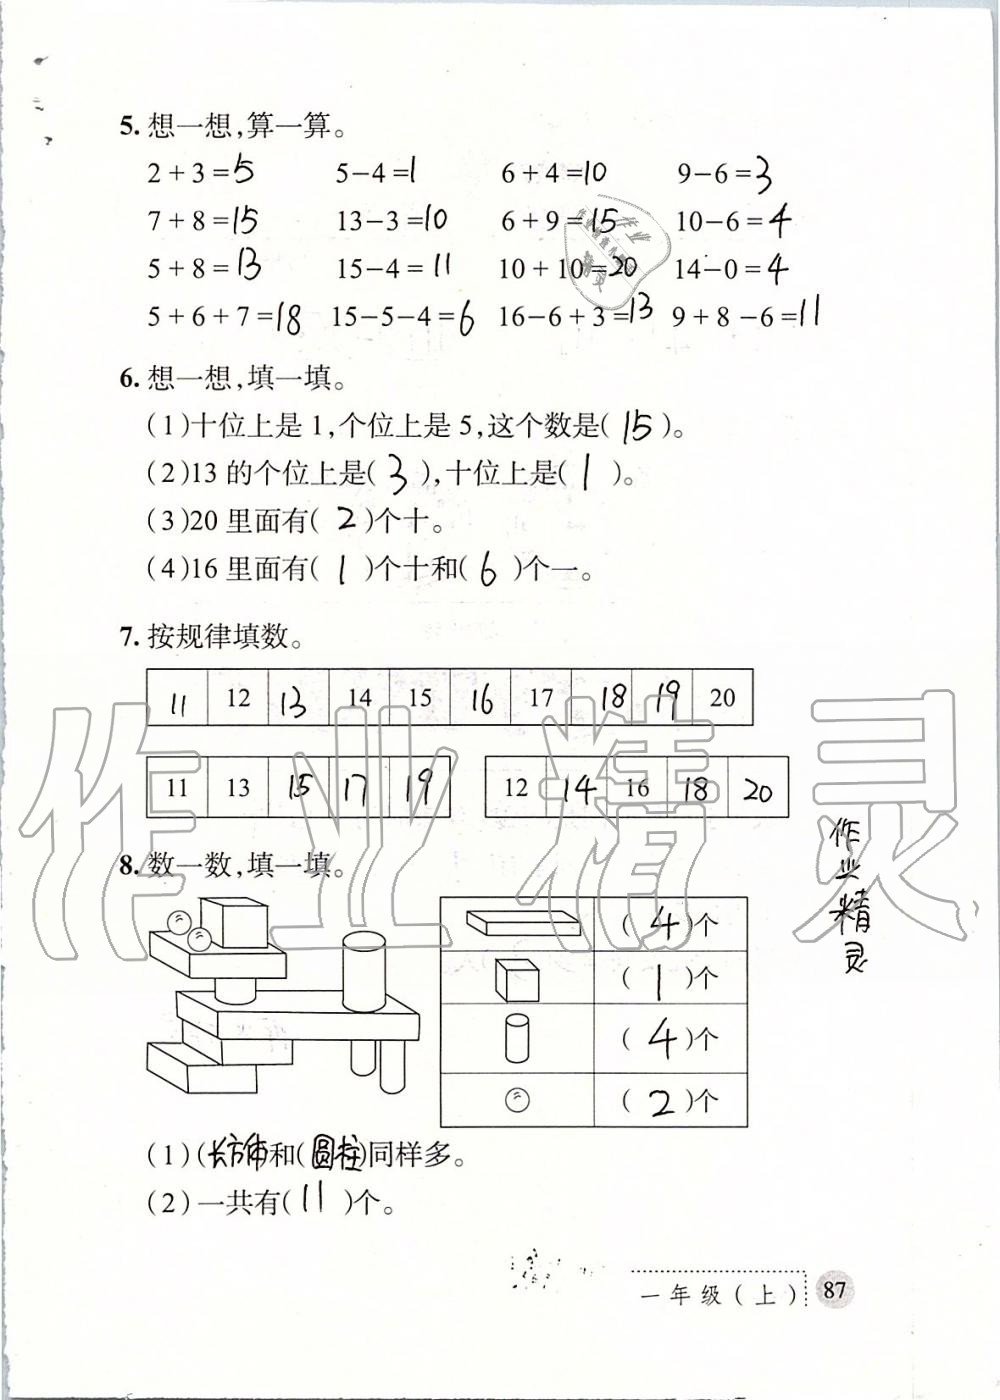 5. 想一想，算一算。
2+3=5 5-4=1 6+4=10 9-6=3
7+8=15 13-3=10 6+9=15 10-6=4
5+8=13 15-4=11 10+10=20 14-0=4
5+6+7=18 15-5-4=6 16-6+3=13 9+8-6=11
6. 想一想，填一填。
(1)十位上是1，个位上是5，这个数是( 15 )。
(2)13的个位上是( 3 )，十位上是( 1 )。
(3)20里面有( 2 )个十。
(4)16里面有( 1 )个十和( 6 )个一。
7. 按规律填数。
11 12 13 14 15 16 17 18 19 20
11 13 15 17 19 12 14 16 18 20
8. 数一数，填一填。
( 4 )个
( 1 )个
( 4 )个
( 2 )个
(1)(长方体和(圆柱)同样多。
(2)一共有( 11 )个。
作业精灵
作业精灵
一年级(上) 87